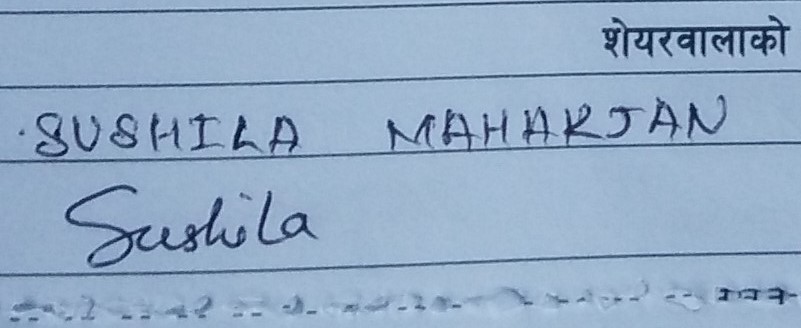 शेयरवालाको
SUSHILA MAHARJAN
Sushila